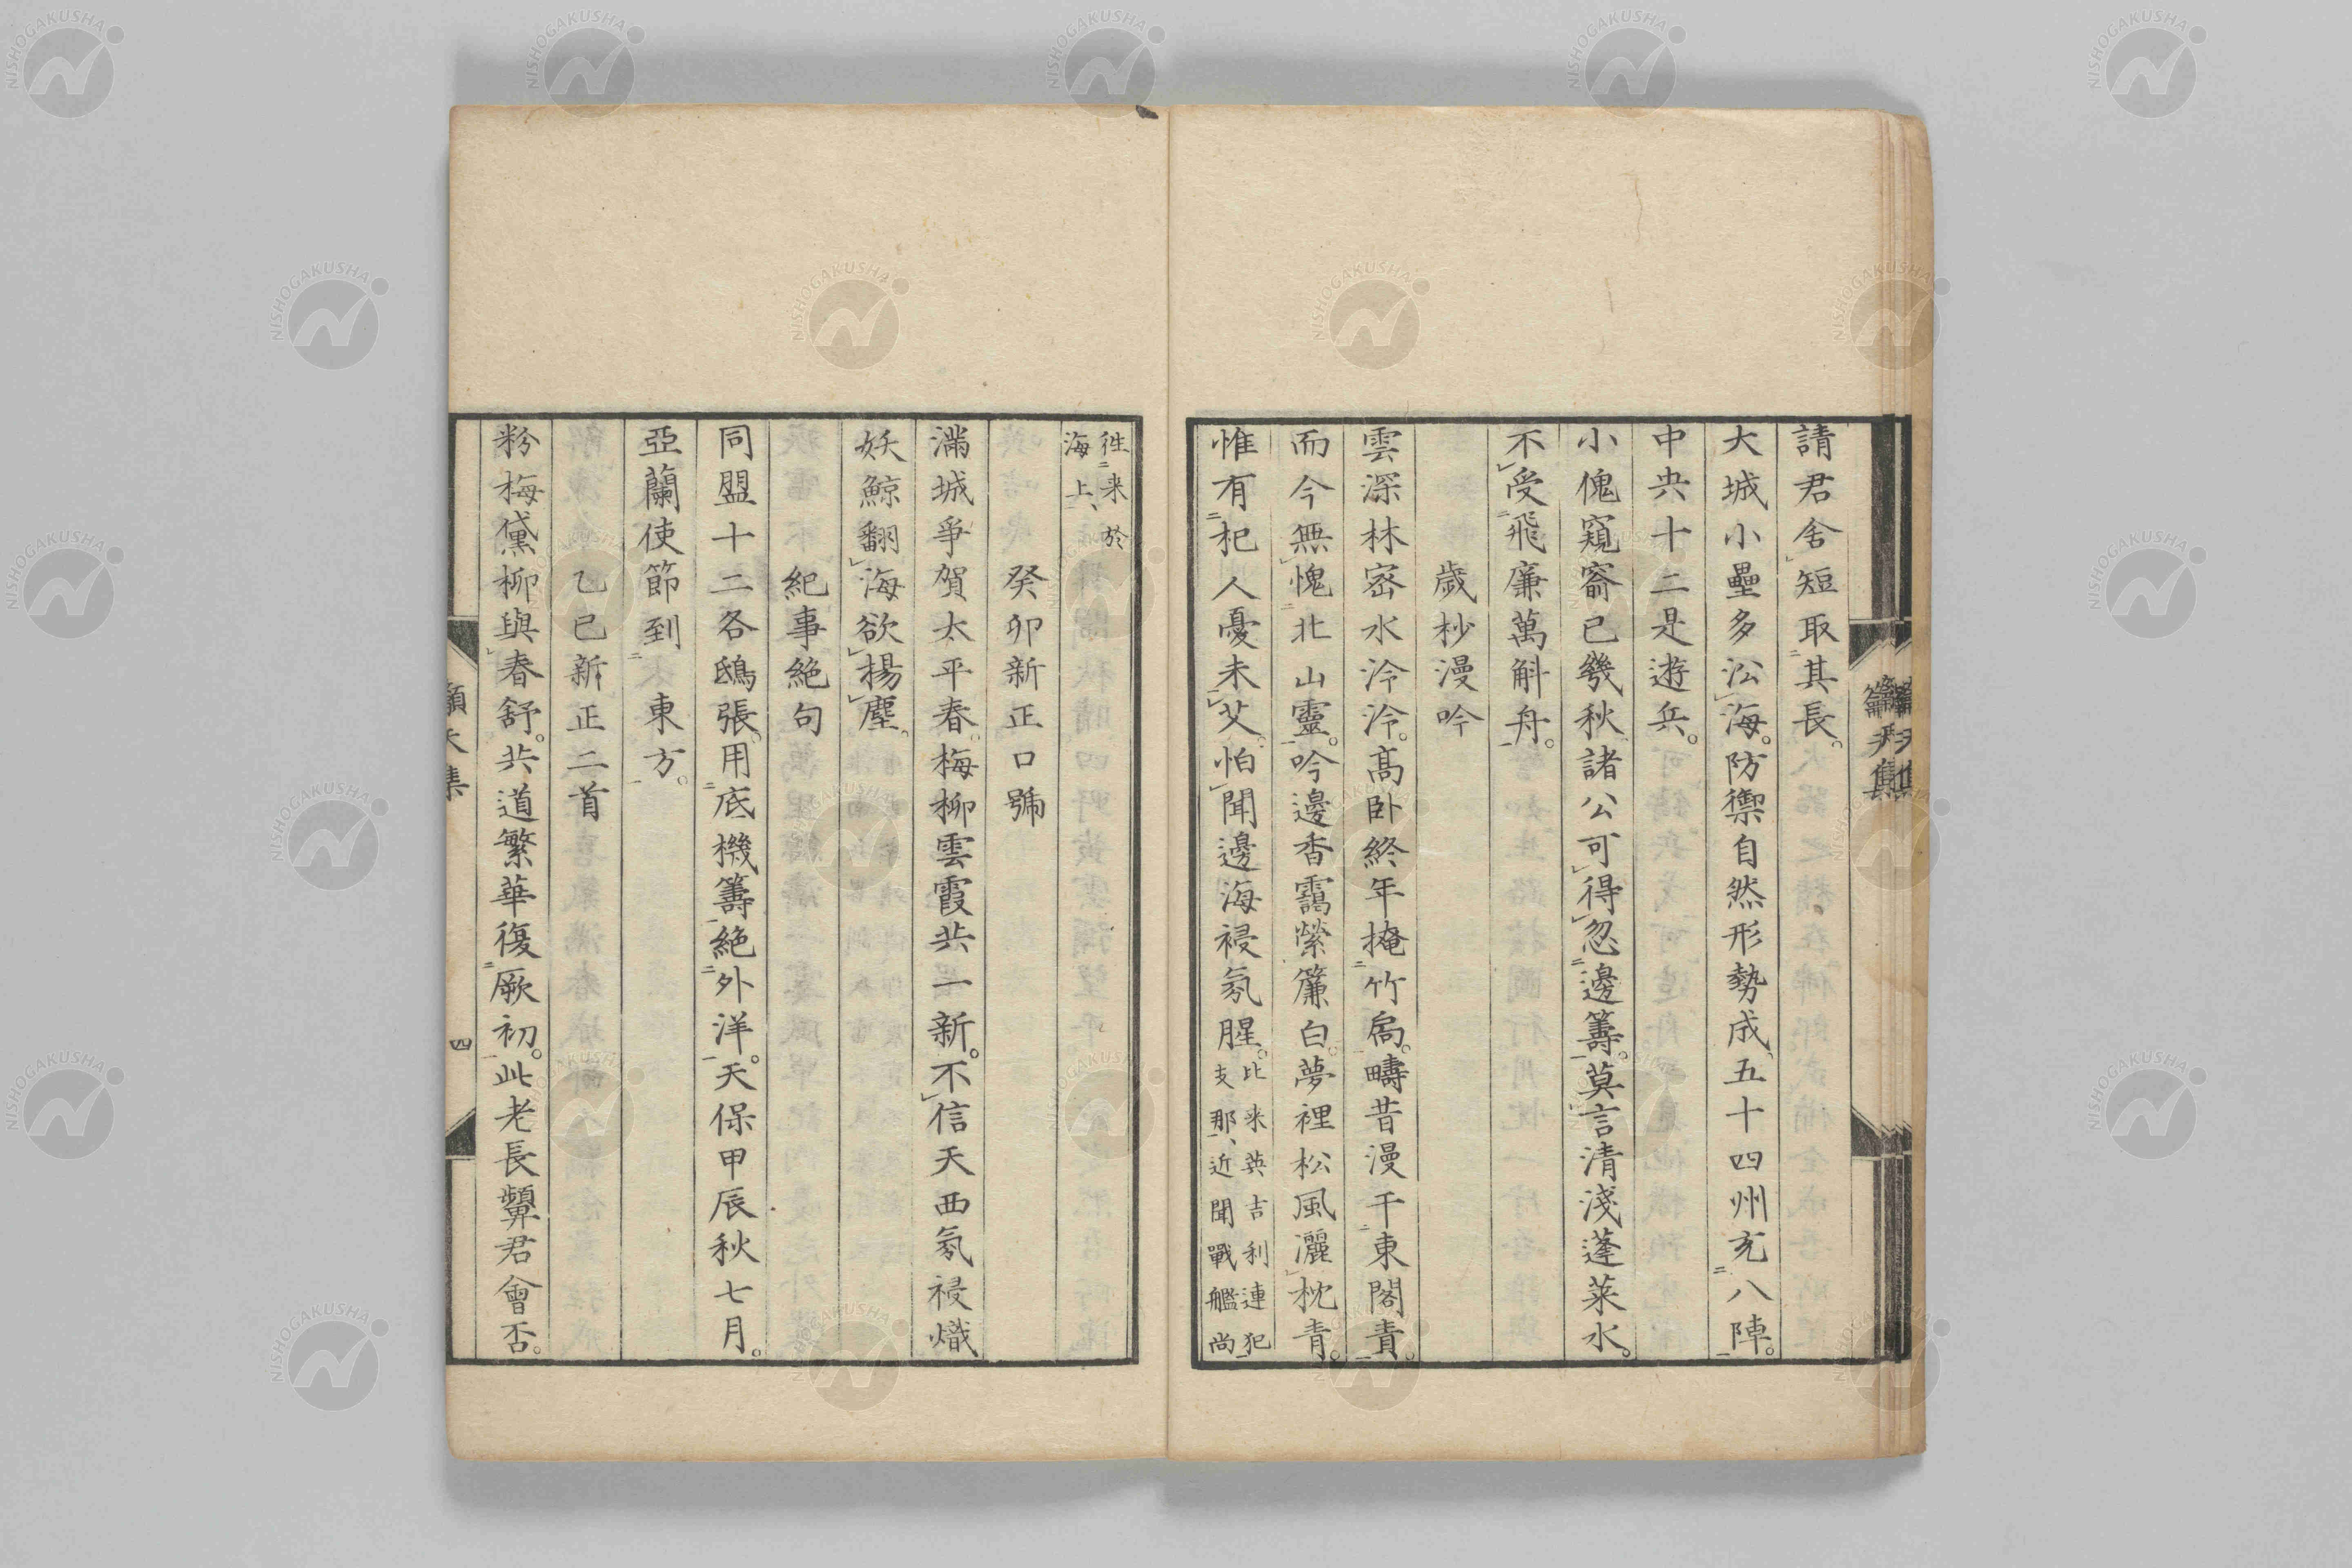 請君舍短取其長。
大城小壘多㳂海。防禦自然形勢成、五十四州充八陣。
中央十二是遊兵。
小傀窺窬已幾秋諸公可得忽邊籌。莫言清淺蓬萊水。
不受飛廉萬斛舟。
歲杪漫吟
雲深林密水泠泠。高卧終年掩竹扃。疇昔漫干東閣責。
而今無愧北山靈。吟邊香靄縈簾白。夢裡松風灑枕青。
惟有杞人憂未艾。怕聞邊海祲氛腥。比来英吉利連犯
支那、近聞戰艦尚
徃来於
海上、
癸卯新正口號
滿城爭賀太平春。梅柳雲霞共一新。不信天西氛祲熾
妖鯨翻海欲揚塵。
紀事絶句
同盟十二各鴟張。用底機籌絶外洋。天保甲辰秋七月。
亞蘭使節到東方。
乙巳新正二首
粉梅黛柳與春舒。共道繁華復厥初。此老長顰君會否。
籲天集
四
NISHOGAKUSHA